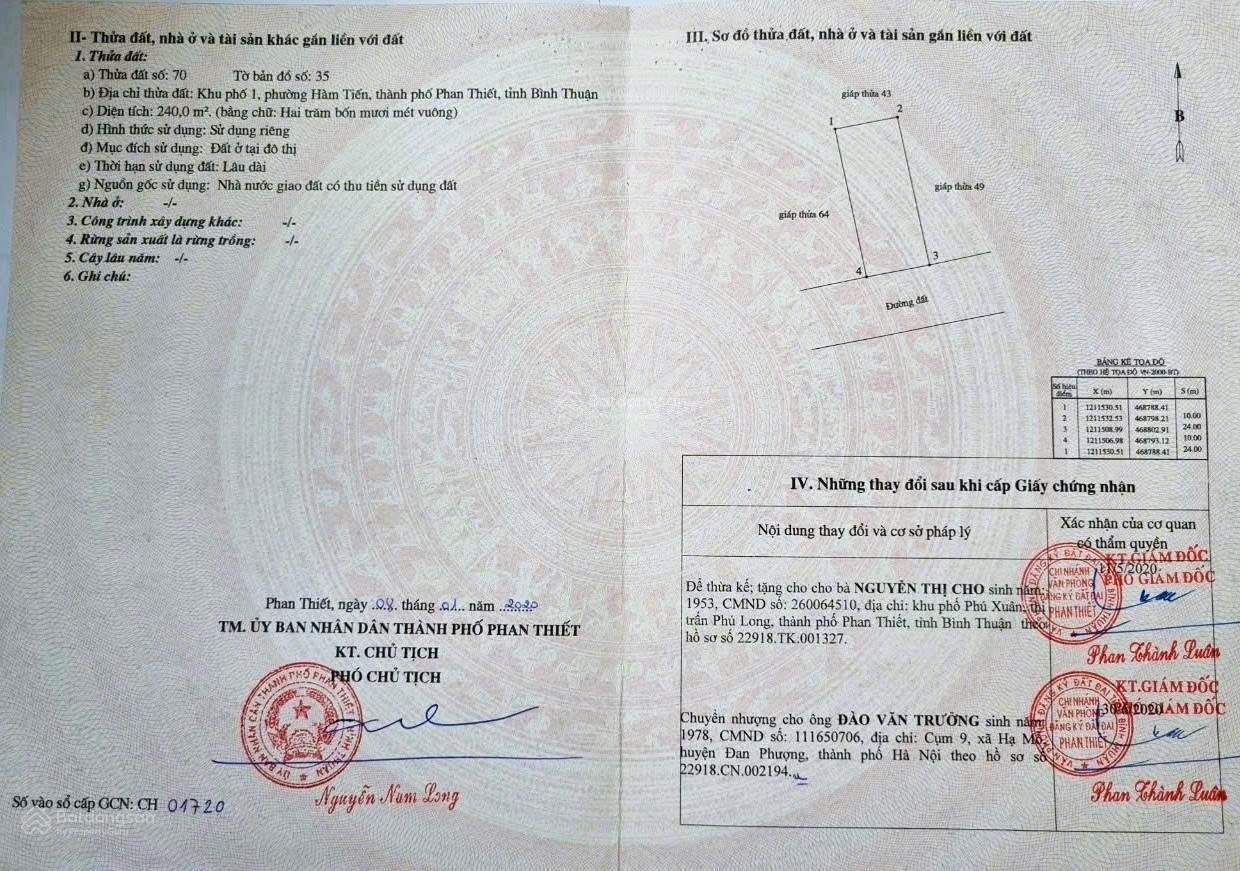 II- Thửa đất, nhà ở và tài sản khác gắn liền với đất
1. Thửa đất:
a) Thửa đất số: 70 Tờ bản đồ số: 35
b) Địa chỉ thửa đất: Khu phố 1, phường Hàm Tiến, thành phố Phan Thiết, tỉnh Bình Thuận
c) Diện tích: 240,0 m². (bằng chữ: Hai trăm bốn mươi mét vuông)
d) Hình thức sử dụng: Sử dụng riêng
đ) Mục đích sử dụng: Đất ở tại đô thị
e) Thời hạn sử dụng đất: Lâu dài
g) Nguồn gốc sử dụng: Nhà nước giao đất có thu tiền sử dụng đất
2. Nhà ở: -/-
3. Công trình xây dựng khác: -/-
4. Rừng sản xuất là rừng trồng: -/-
5. Cây lâu năm: -/-
6. Ghi chú:
Phan Thiết, ngày 08 tháng 01 năm 2020
TM. ỦY BAN NHÂN DÂN THÀNH PHỐ PHAN THIẾT
KT. CHỦ TỊCH
PHÓ CHỦ TỊCH
Nguyễn Nam Long
Số vào sổ cấp GCN: CH 01720
Batdongsan
by PropertyGuru
III. Sơ đồ thửa đất, nhà ở và tài sản gắn liền với đất
giáp thửa 43
1
2
B
giáp thửa 49
giáp thửa 64
3
4
Đường đất
BẢNG KÊ TỌA ĐỘ
(THEO HỆ TỌA ĐỘ VN-2000-BT)
Số hiệu điểm X (m) Y (m) S (m)
1 1211530.51 468788.41
10.00
2 1211532.53 468798.21
24.00
3 1211508.99 468802.91
10.00
4 1211506.98 468793.12
24.00
1 1211530.51 468788.41
IV. Những thay đổi sau khi cấp Giấy chứng nhận
Nội dung thay đổi và cơ sở pháp lý
Xác nhận của cơ quan
có thẩm quyền
Để thừa kế; tặng cho cho bà NGUYỄN THỊ CHO sinh năm:
1953, CMND số: 260064510, địa chỉ: khu phố Phú Xuân, thị
trấn Phú Long, thành phố Phan Thiết, tỉnh Bình Thuận theo
hồ sơ số 22918.TK.001327.
KT.GIÁM ĐỐC
/5/2020
PHÓ GIÁM ĐỐC
CHI NHÁNH
VĂN PHÒNG
ĐĂNG KÝ ĐẤT ĐAI
PHAN THIẾT
Phan Thành Luân
Chuyển nhượng cho ông ĐÀO VĂN TRƯỜNG sinh năm
1978, CMND số: 111650706, địa chỉ: Cụm 9, xã Hạ Mỗ,
huyện Đan Phượng, thành phố Hà Nội theo hồ sơ số
22918.CN.002194.
KT.GIÁM ĐỐC
PHÓ GIÁM ĐỐC
CHI NHÁNH
VĂN PHÒNG
ĐĂNG KÝ ĐẤT ĐAI
PHAN THIẾT
Phan Thành Luân